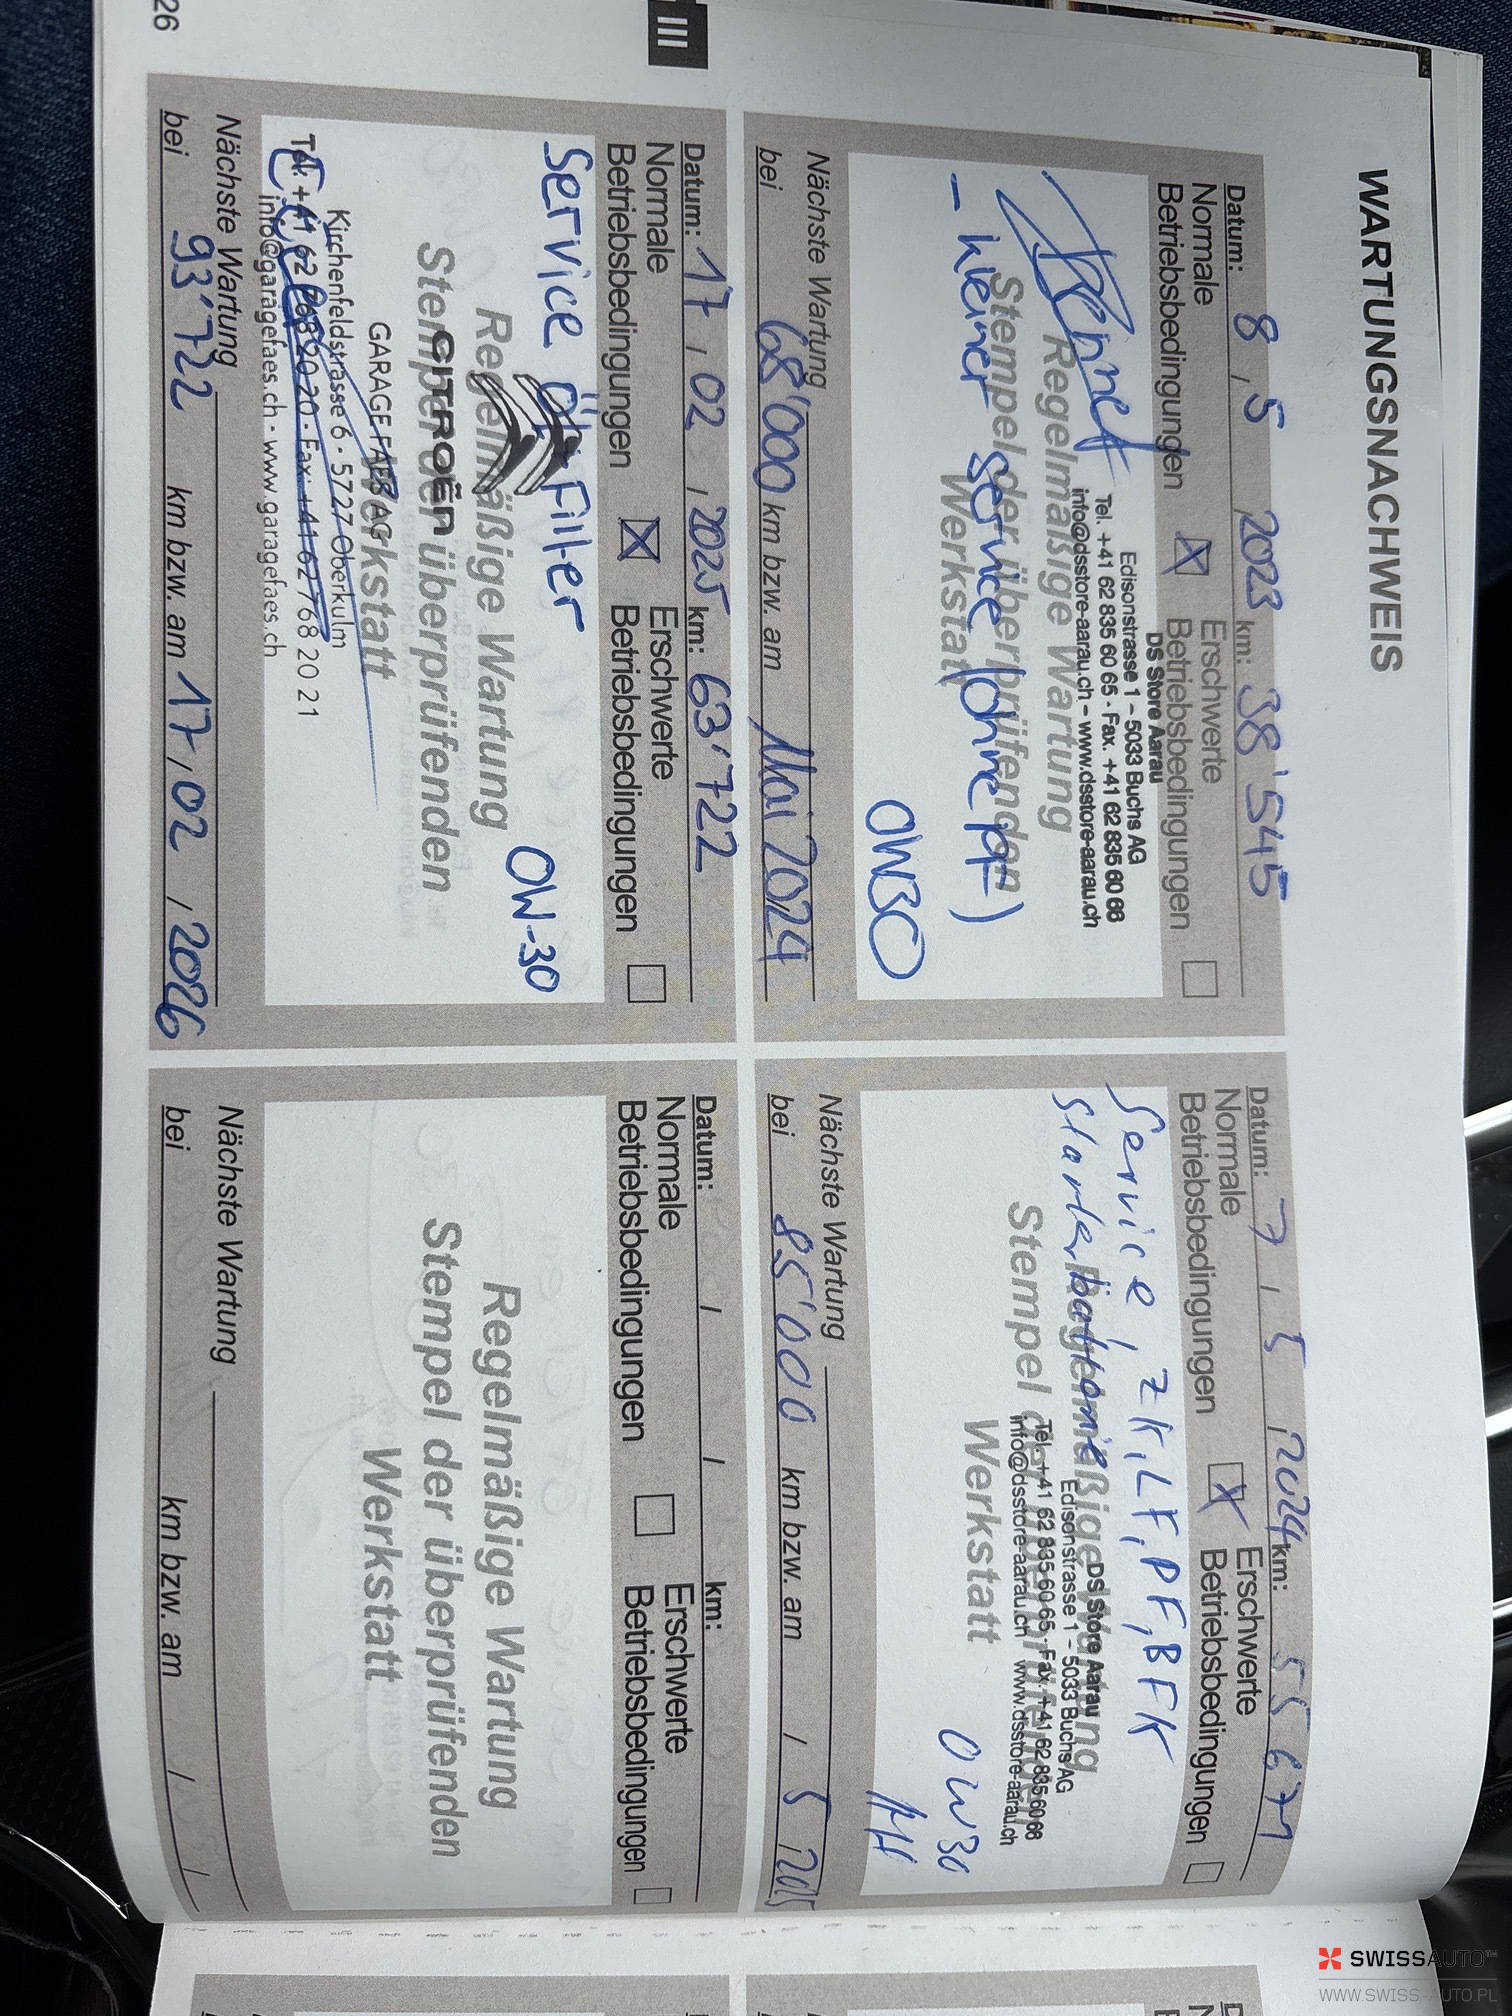 WARTUNGSNACHWEIS
Datum: 8 , 5 2023 km: 38'545
Normale
Betriebsbedingungen
Erschwerte
Betriebsbedingungen
DS Store Aarau
Edisonstrasse 1 – 5033 Buchs AG
Tel. +41 62 835 60 65 - Fax. +41 62 835 60 66
info@dsstore-aarau.ch – www.dsstore-aarau.ch
Regelmäßige Wartung
Stempel der überprüfenden
Werkstatt
- kleiner Service (ohne PF)
0W30
Nächste Wartung
bei 68'000 km bzw. am Mai 2024
Datum: 7 , 5 , 2024 km: 55 671
Normale
Betriebsbedingungen
Erschwerte
Betriebsbedingungen
Service, ZK, LF, PF, BFK
Starterbatterie
Regelmäßige Wartung
Stempel der überprüfenden
Werkstatt
DS Store Aarau
Edisonstrasse 1 - 5033 Buchs AG
Tel. +41 62 835 60 65 - Fax. +41 62 835 60 66
info@dsstore-aarau.ch www.dsstore-aarau.ch
0W30
Nächste Wartung
bei 85'000 km bzw. am / 5 / 2025
Datum: 17 , 02 , 2025 km: 63'722
Normale
Betriebsbedingungen
Erschwerte
Betriebsbedingungen
Service Öl + Filter
0W-30
Regelmäßige Wartung
Stempel der überprüfenden
Werkstatt
CITROËN
GARAGE FAES AG
Kirchenfeldstrasse 6 · 5727 Oberkulm
Tel. +41 62 768 20 20 · Fax: +41 62 768 20 21
info@garagefaes.ch · www.garagefaes.ch
Nächste Wartung
bei 93'722 km bzw. am 17 , 02 , 2026
Datum: / / km:
Normale
Betriebsbedingungen
Erschwerte
Betriebsbedingungen
Regelmäßige Wartung
Stempel der überprüfenden
Werkstatt
Nächste Wartung
bei km bzw. am / /
26
III
SWISSAUTO™
WWW.SWISS-AUTO.PL